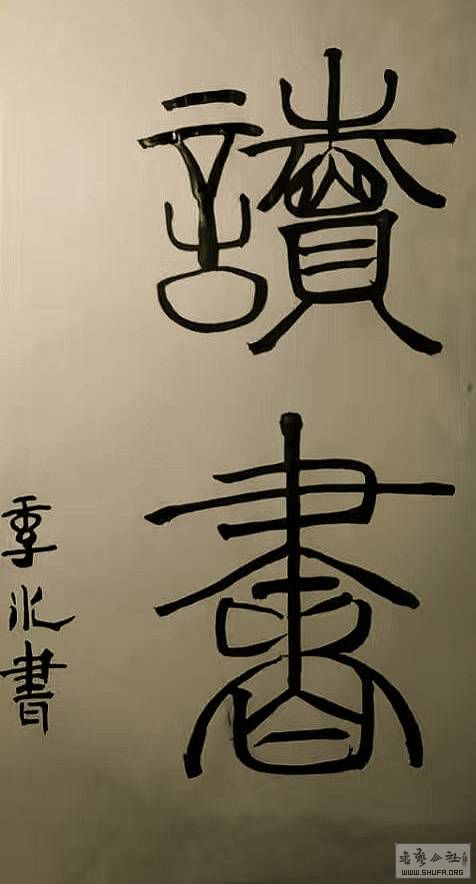 讀書
季水書
书艺公社
WWW.SHUFA.ORG